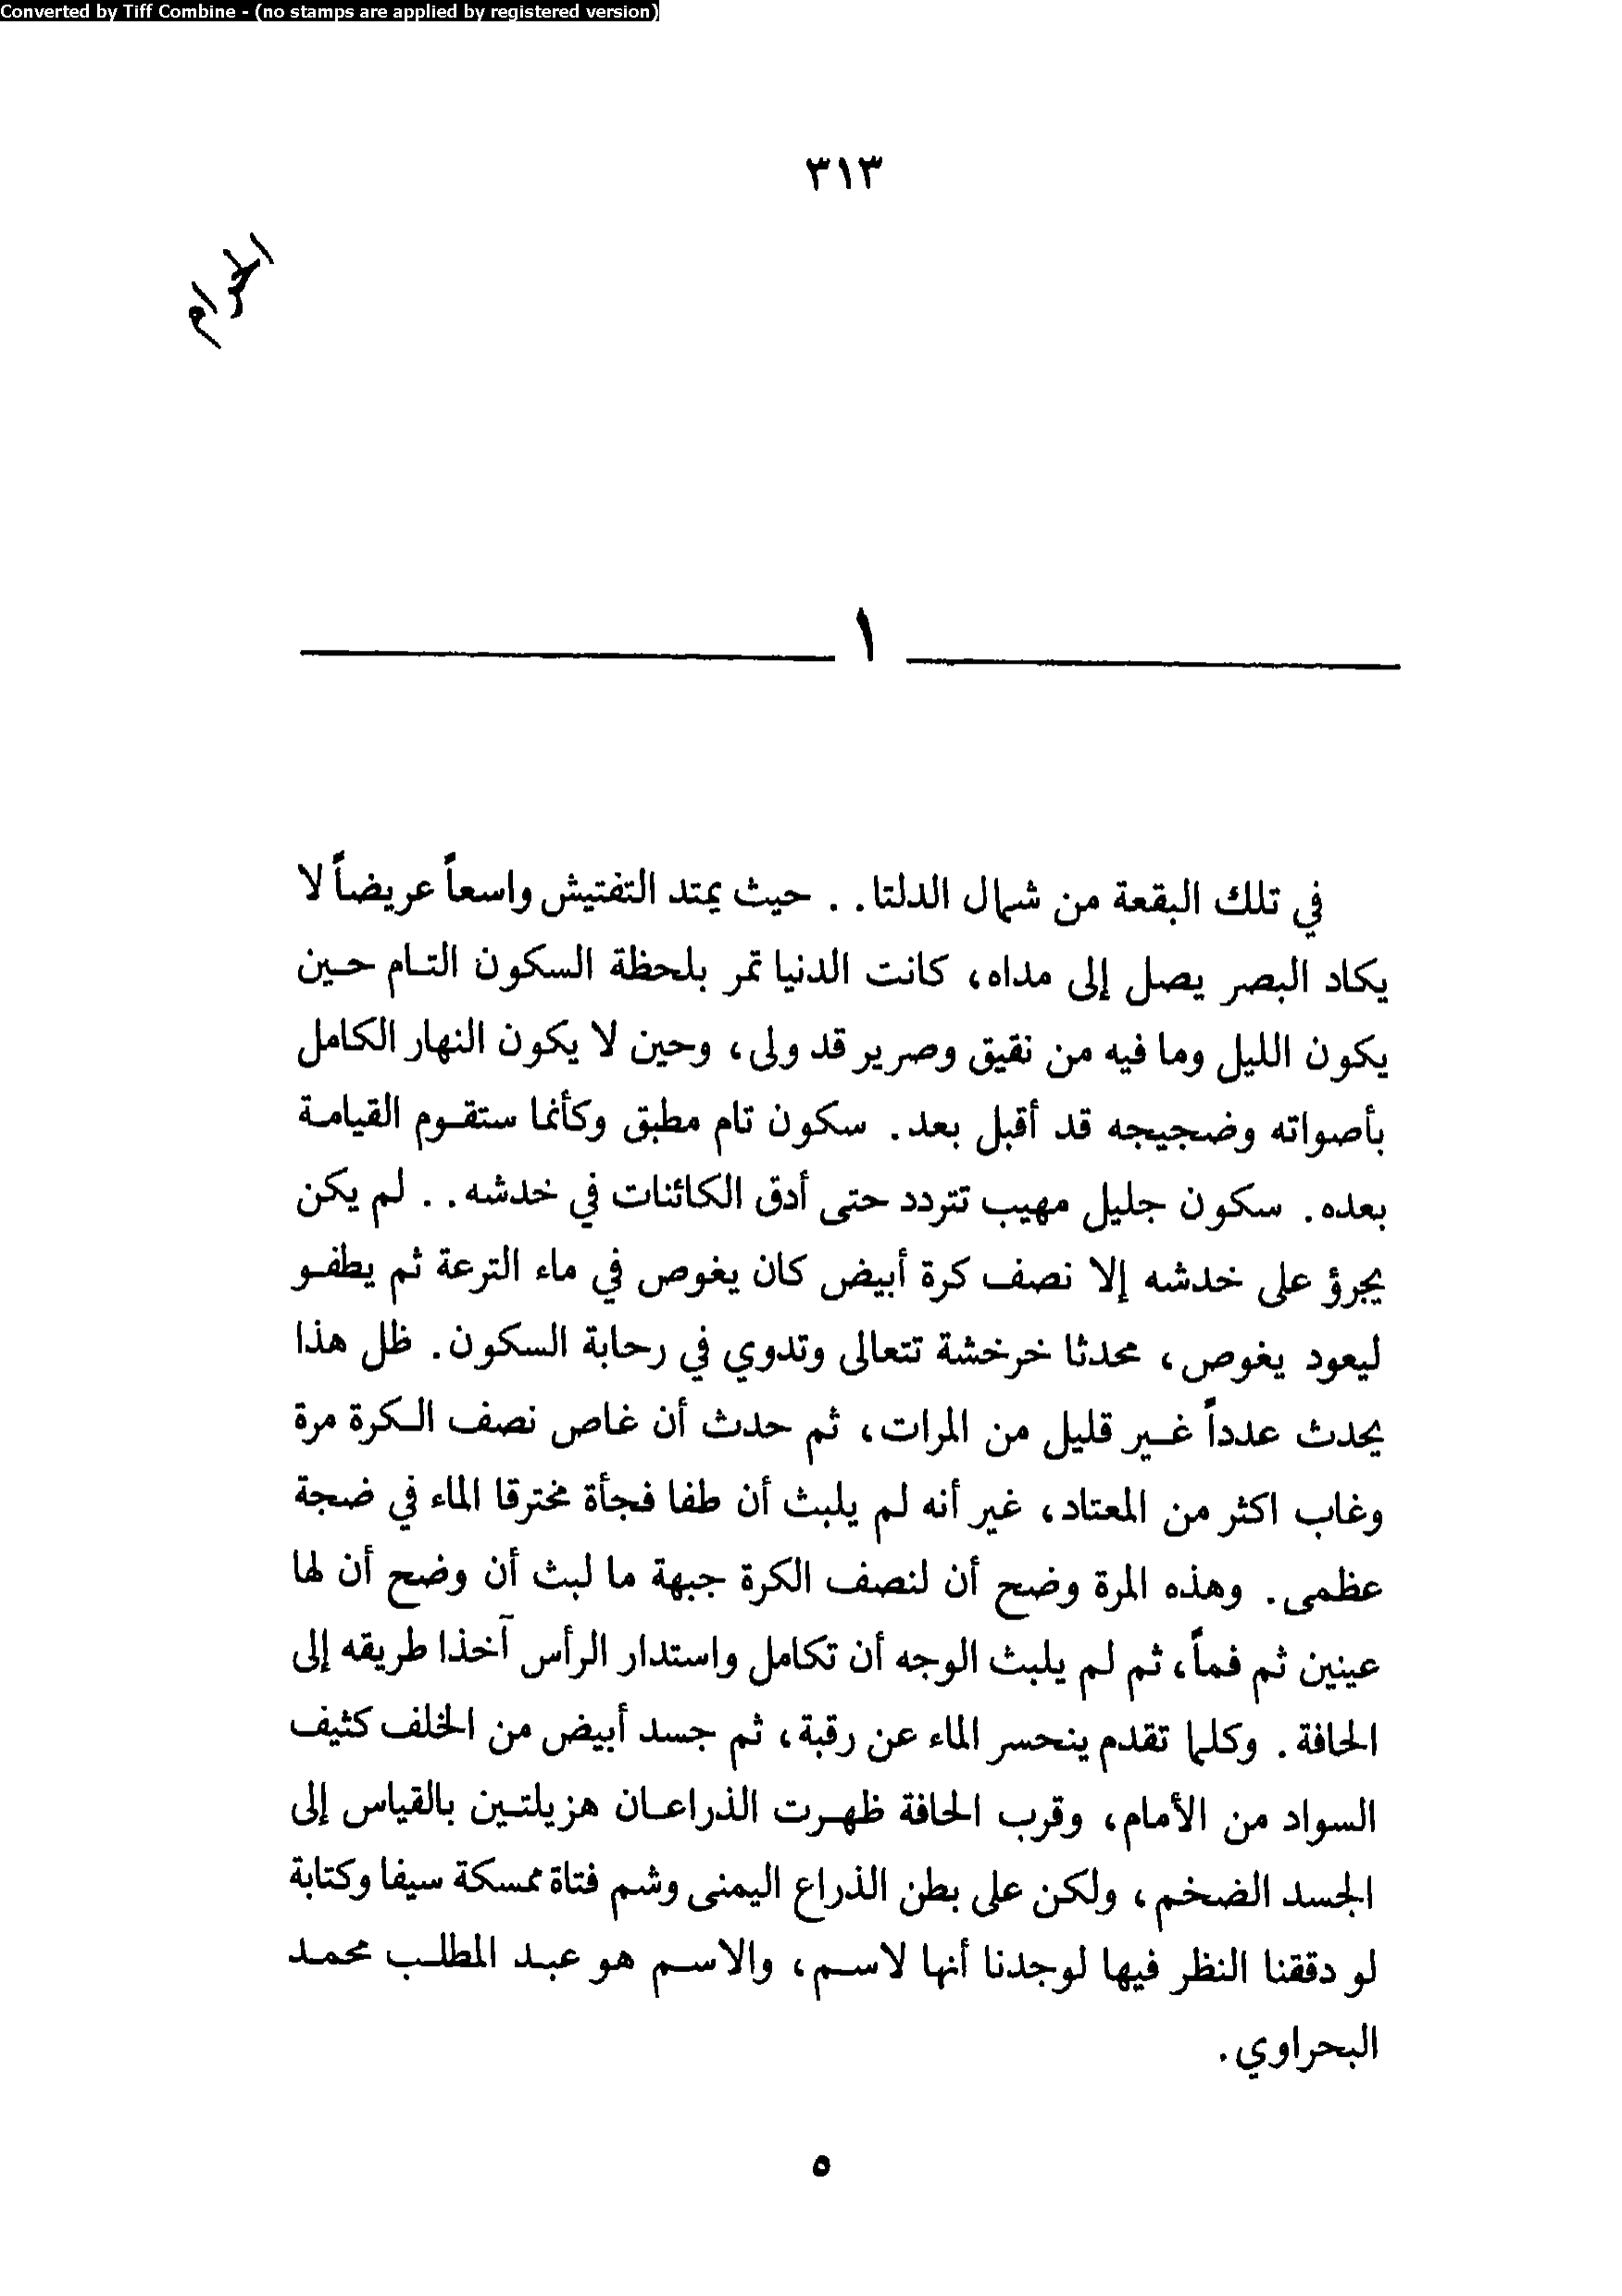 Converted by Tiff Combine - (no stamps are applied by registered version)
٣١٣
الحرام
١
في تلك البقعة من شمال الدلتا. . حيث يمتد التفتيش واسعاً عريضاً لا
يكاد البصر يصل إلى مداه، كانت الدنيا تمر بلحظة السكون التام حين
يكون الليل وما فيه من نقيق وصرير قد ولى، وحين لا يكون النهار الكامل
بأصواته وضجيجه قد أقبل بعد. سكون تام مطبق وكأنما ستقوم القيامة
بعده. سكون جليل مهيب تتردد حتى أدق الكائنات في خدشه. . لم يكن
يجرؤ على خدشه إلا نصف كرة أبيض كان يغوص في ماء الترعة ثم يطفو
ليعود يغوص، محدثا خرخشة تتعالى وتدوي في رحابة السكون. ظل هذا
يحدث عدداً غير قليل من المرات، ثم حدث أن غاص نصف الكرة مرة
وغاب اكثر من المعتاد، غير أنه لم يلبث أن طفا فجأة مخترقا الماء في ضجة
عظمى. وهذه المرة وضح أن لنصف الكرة جبهة ما لبث أن وضح أن لها
عينين ثم فماً، ثم لم يلبث الوجه أن تكامل واستدار الرأس آخذا طريقه إلى
الحافة. وكلما تقدم ينحسر الماء عن رقبة، ثم جسد أبيض من الخلف كثيف
السواد من الأمام، وقرب الحافة ظهرت الذراعان هزيلتين بالقياس إلى
الجسد الضخم، ولكن على بطن الذراع اليمنى وشم فتاة ممسكة سيفا وكتابة
لو دققنا النظر فيها لوجدنا أنها لاسم، والاسم هو عبد المطلب محمد
البحراوي.
٥